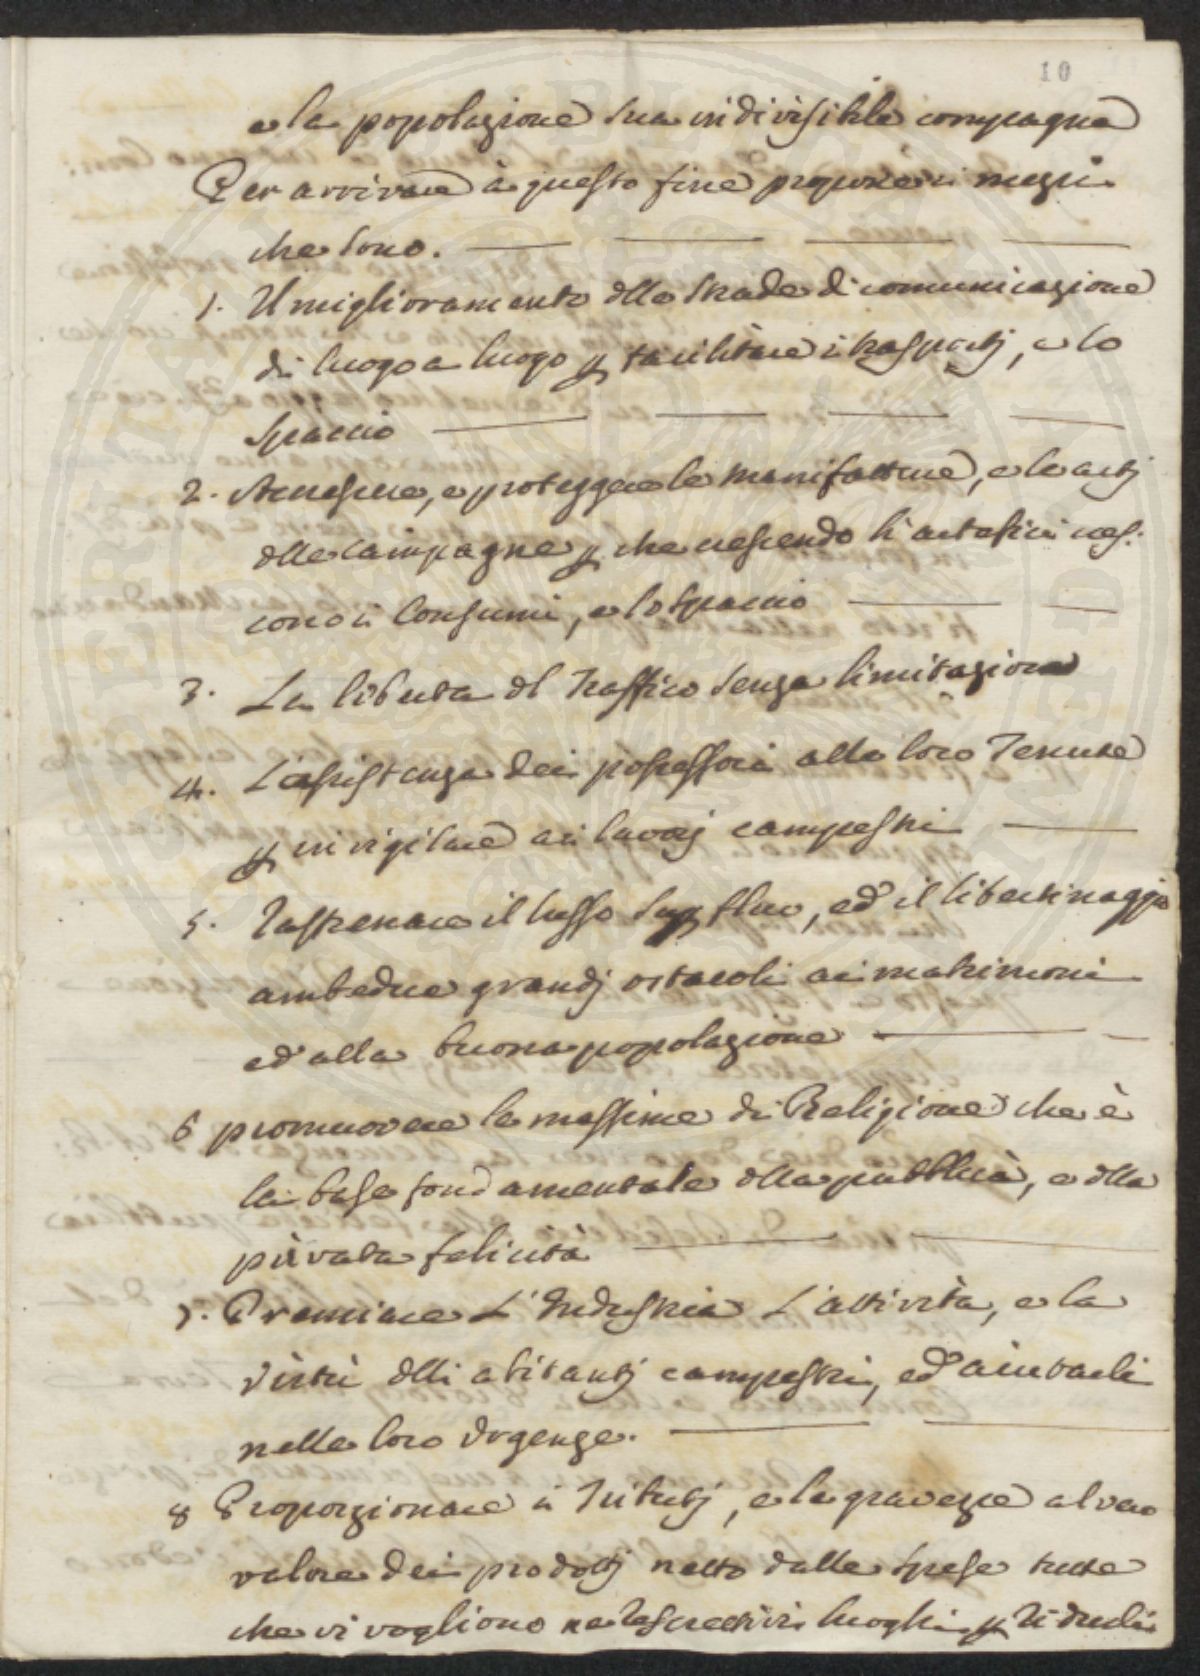 10
e la popolazione sua indivisibile compagna
Per arrivare à questo fine proponerei mezzi
che sono.
1. Il miglioramento dlle Strade di comunicazione
di luogo a luogo p facilitare i trasportj, e lo
Spaccio
2. Accrescere, e proteggere le manifatture, e le artj
dlle campagne p che crescendo li artefici cres:
cono i Consumi, e lo Spaccio
3. La libertà dl Traffico senza limitazione
4. L'assistenza dei possessori alle loro Tenute
p invigilare ai lavorj campestri
5. Raffrenare il lusso supfluo, ed il libertinaggio
ambedue grandj ostacoli ai matrimoni
ed alla buona popolazione
6 promuovere le massime di Religione che è
la base fondamentale dlla pubblica, e dlla
privata felicità
7. Premiare L'Industria L'attività, e la
virtù dlli abitantj campestri, ed aiutarli
nelle loro Urgenze.
8 Proporzionare i Tributj, e le gravezze al vero
valore dei prodottj netto dalle spese tutte
che vi vogliono ne respettivi luoghi p ridurli